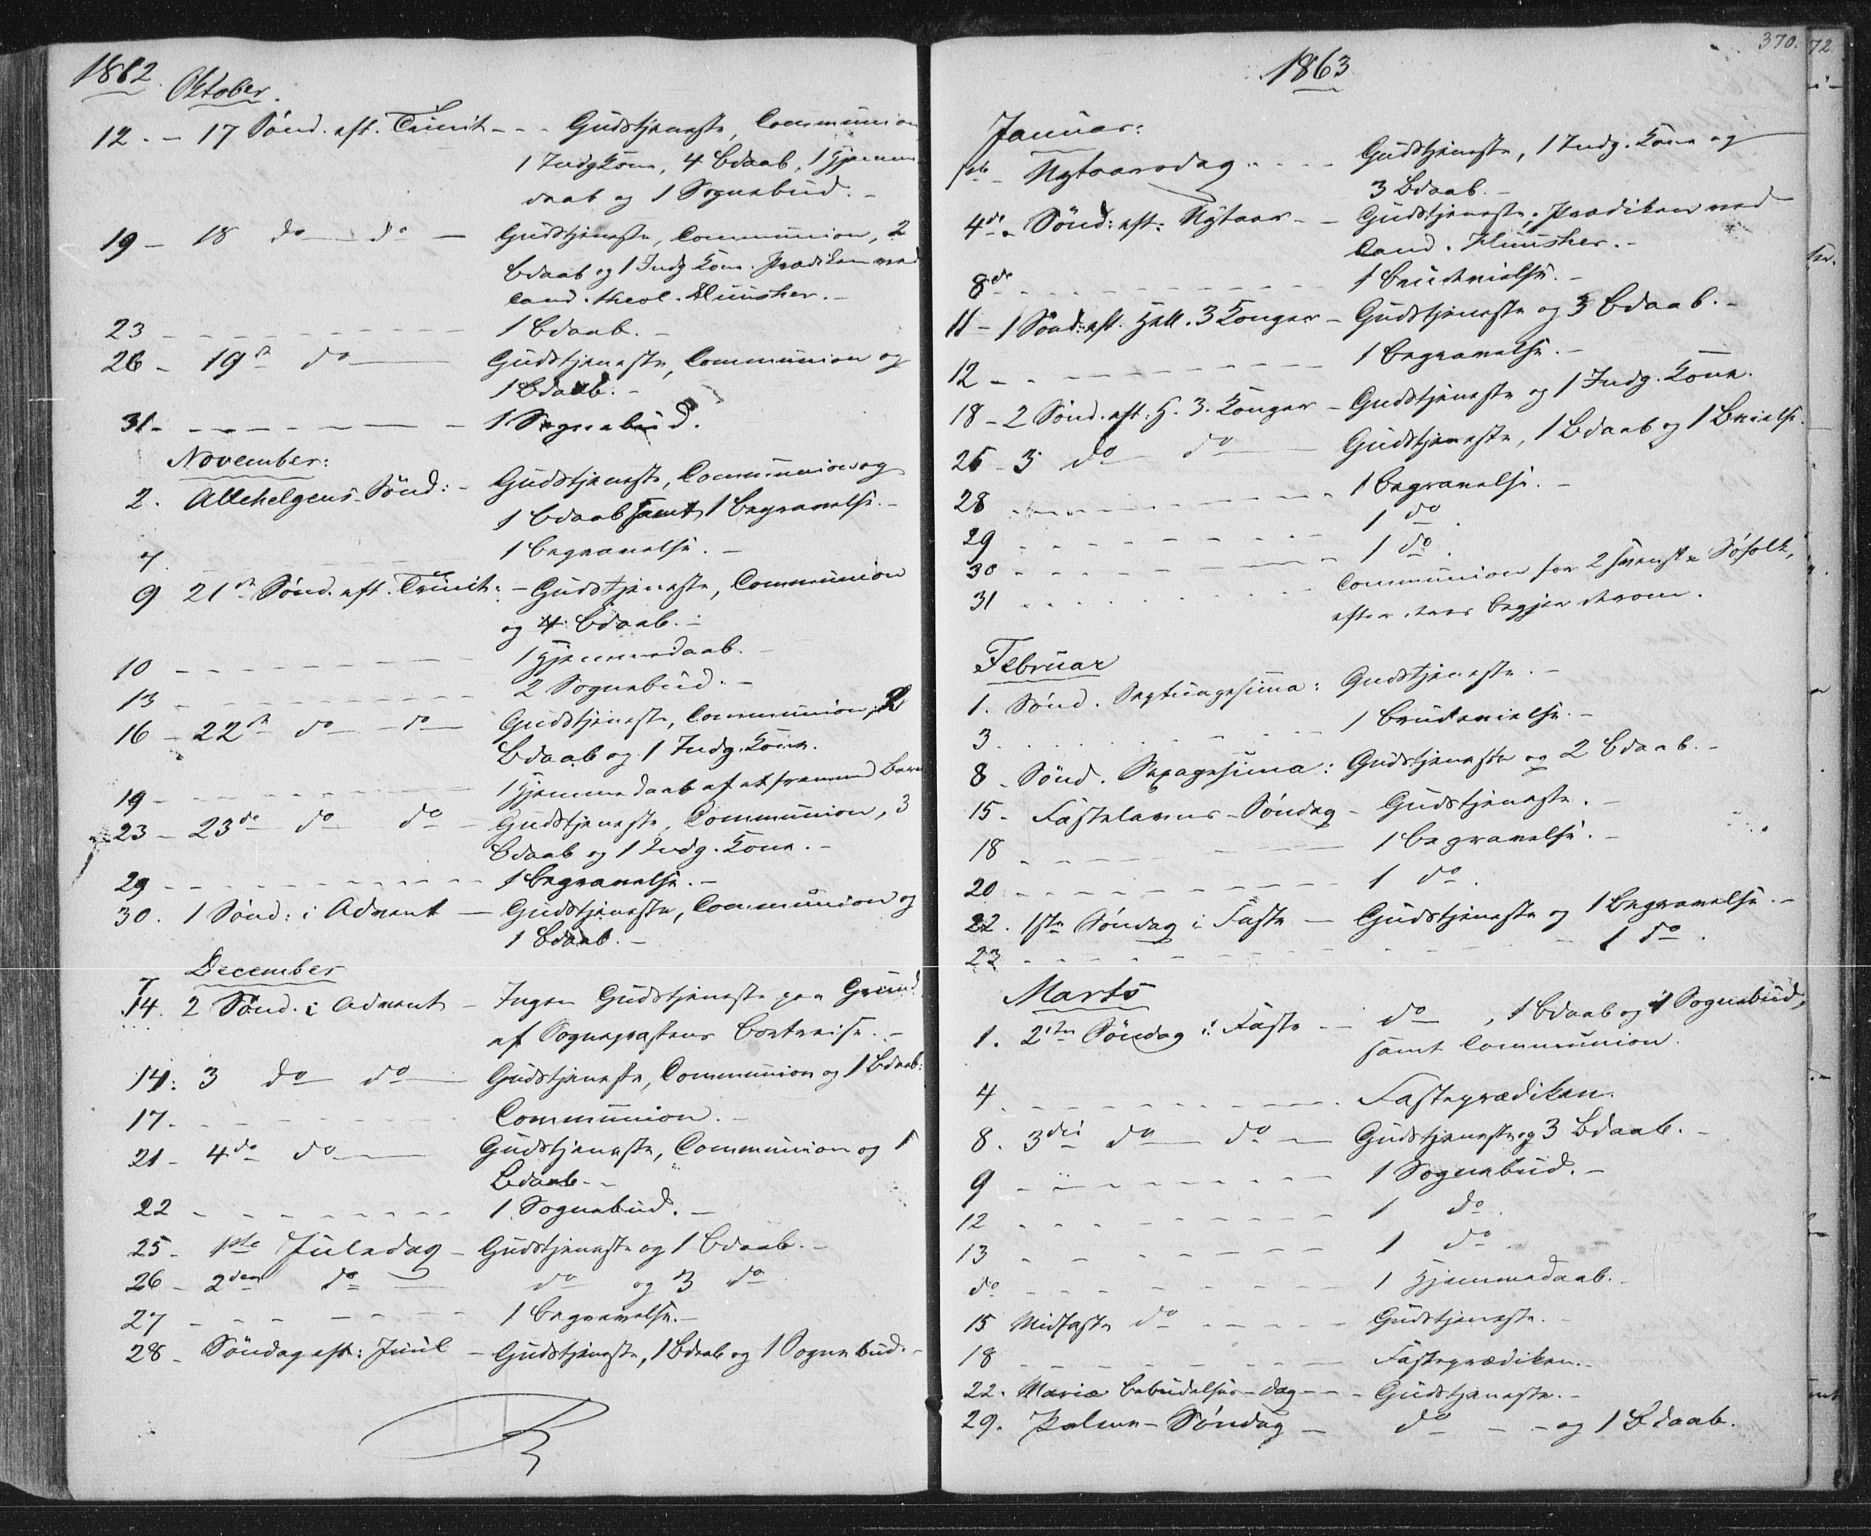 1862.
Oktober.
12. - 17 Sönd. eft. Trinit - - - Gudstjeneste, Communion
1 Indg Kone, 4 Bdaab, 1 Hjemme
daab og 1 Sognebud. -
19 - 18 do do - Gudstjeneste, Communion, 2
Bdaab og 1 Indg Kone. Prædiken ved
Cand. theol.
23 - - - 1 Bdaab. -
26 - 19de do - Gudstjeneste, Communion og
1 Bdaab. -
31 - - - 1 Sognebud.
November:
2. Allehelgens-Sönd: - Gudstjeneste, Communion og
1 Bdaab samt 1 Begravelse. -
7. 1 Begravelse. -
9 21de Sönd. eft. Trinit: - Gudstjeneste, Communion
og 4 Bdaab. -
10 - - - 1 Hjemmedaab. -
13 - - - 2 Sognebud. -
16 - 22de do - do - Gudstjeneste, Communion, 2
Bdaab og 1 Indg. Kone.
19 - - - 1 Hjemmedaab af et fremmed Barn
23 - 23de do do - Gudstjeneste, Communion, 3
Bdaab og 1 Indg. Kone. -
29 - - - 1 Begravelse. -
30. 1 Sönd: i Advent - Gudstjeneste, Communion og
1 Bdaab. -
December
7
14. 2 Sönd. i Advent - Ingen Gudstjeneste paa Grund
af Sognepræstens Bortreise. -
14: 3 do do - Gudstjeneste, Communion og 1 Bdaab:
17. - - - Communion. -
21 - 4de do - Gudstjeneste, Communion og 1
Bdaab - -
22 - - - 1 Sognebud. -
25 - 1ste Juledag - Gudstjeneste og 1 Bdaab. -
26 - 2den do - do og 3 do
27 - - - 1 Begravelse. -
28 - Söndag eft: Juul - Gudstjeneste, 1 Bdaab og 1 Sognebud. -
370.
72
1863
Januar:
Nytaarsdag - - - Gudstjeneste, 1 Indg. Kone og
3 Bdaab. -
4de - Sönd: eft: Nytaar - - Gudstjeneste, Prædiken ved
Cand.
8de - - - 1 Brudevielse. -
11 - 1 Sönd: eft. Hell. 3 Konger - Gudstjeneste og 3 Bdaab. -
12 - - - 1 Begravelse. -
18 - 2 Sönd. eft. H. 3. Konger - Gudstjeneste og 1 Indg. Kone.
25 - 3 do do - Gudstjeneste, 1 Bdaab og 1 Bvielse.
28 - - - 1 Begravelse. -
29 - - - 1 do.
30 - - - 1 do.
31 - - - Communion for 2 svenske Söfolk,
efter deres Begjær derom.
Februar
1. Sönd. Septuagesima: Gudstjeneste. -
3. - - - 1 Brudevielse. -
8 - Sönd. Sexagesima: Gudstjeneste og 2 Bdaab. -
15 - Fastelavns-Söndag - Gudstjeneste. -
18 - - - 1 Begravelse. -
20 - - - 1 do.
22. 1ste Söndag i Faste - Gudstjeneste og 1 Begravelse. -
23 - - - 1 do.
Marts
1. 2den Söndag i Faste - - do , 1 Bdaab og 1 Sognebud,
samt Communion.
4. - - - Fasteprædiken.
8. 3die do do - Gudstjeneste og 3 Bdaab. -
9 - - - 1 Sognebud. -
12 - - - 1 do.
13 - - - 1 do.
do - - - 1 Hjemmedaab. -
15 Midfaste do - - - Gudstjeneste. -
18 - - - Fasteprædiken. -
22. Mariæ Bebudelses-dag - - - Gudstjeneste. -
29. Palme-Söndag - do - - - og 1 Bdaab.